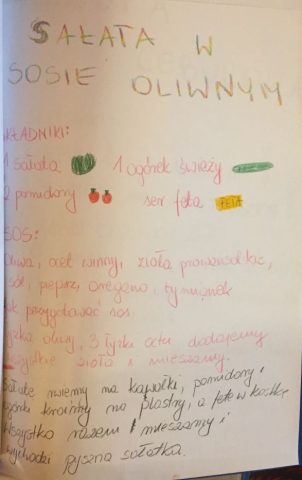 SAŁATA W
SOSIE OLIWNYM
SKŁADNIKI:
1 sałata 1 ogórek świeży
2 pomidory ser feta FETA
SOS:
oliwa, ocet winny, zioła prowansalskie,
sól, pieprz, oregano, tymianek
jak przygotować sos
łyżka oliwy, 3 łyżki octu dodajemy
wszystkie zioła i mieszamy.
Sałatę rwiemy na kawałki, pomidory i
ogórki kroimy na plastry, a fetę w kostkę
wszystko razem mieszamy i
wychodzi pyszna sałatka.